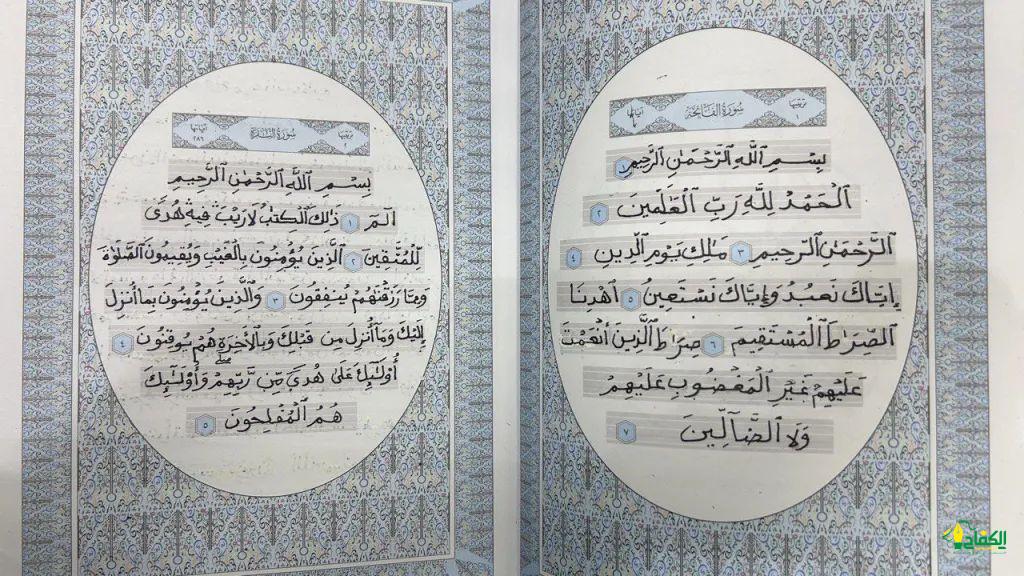 ترتيبها ١ سورة الفاتحة آياتها ٧
بِسْمِ ٱللَّهِ ٱلرَّحْمَٰنِ ٱلرَّحِيمِ ١
ٱلْحَمْدُ لِلَّهِ رَبِّ ٱلْعَٰلَمِينَ ٢
ٱلرَّحْمَٰنِ ٱلرَّحِيمِ ٣ مَٰلِكِ يَوْمِ ٱلدِّينِ ٤
إِيَّاكَ نَعْبُدُ وَإِيَّاكَ نَسْتَعِينُ ٥ ٱهْدِنَا
ٱلصِّرَٰطَ ٱلْمُسْتَقِيمَ ٦ صِرَٰطَ ٱلَّذِينَ أَنْعَمْتَ
عَلَيْهِمْ غَيْرِ ٱلْمَغْضُوبِ عَلَيْهِمْ
وَلَا ٱلضَّآلِّينَ ٧
ترتيبها ٢ سورة البقرة آياتها ٢٨٦
بِسْمِ ٱللَّهِ ٱلرَّحْمَٰنِ ٱلرَّحِيمِ
الٓمٓ ١ ذَٰلِكَ ٱلْكِتَٰبُ لَا رَيْبَ فِيهِ هُدًى
لِّلْمُتَّقِينَ ٢ ٱلَّذِينَ يُؤْمِنُونَ بِٱلْغَيْبِ وَيُقِيمُونَ ٱلصَّلَوٰةَ
وَمِمَّا رَزَقْنَٰهُمْ يُنفِقُونَ ٣ وَٱلَّذِينَ يُؤْمِنُونَ بِمَآ أُنزِلَ
إِلَيْكَ وَمَآ أُنزِلَ مِن قَبْلِكَ وَبِٱلْأَخِرَةِ هُمْ يُوقِنُونَ ٤
أُو۟لَٰٓئِكَ عَلَىٰ هُدًى مِّن رَّبِّهِمْ وَأُو۟لَٰٓئِكَ
هُمُ ٱلْمُفْلِحُونَ ٥
الكفاح